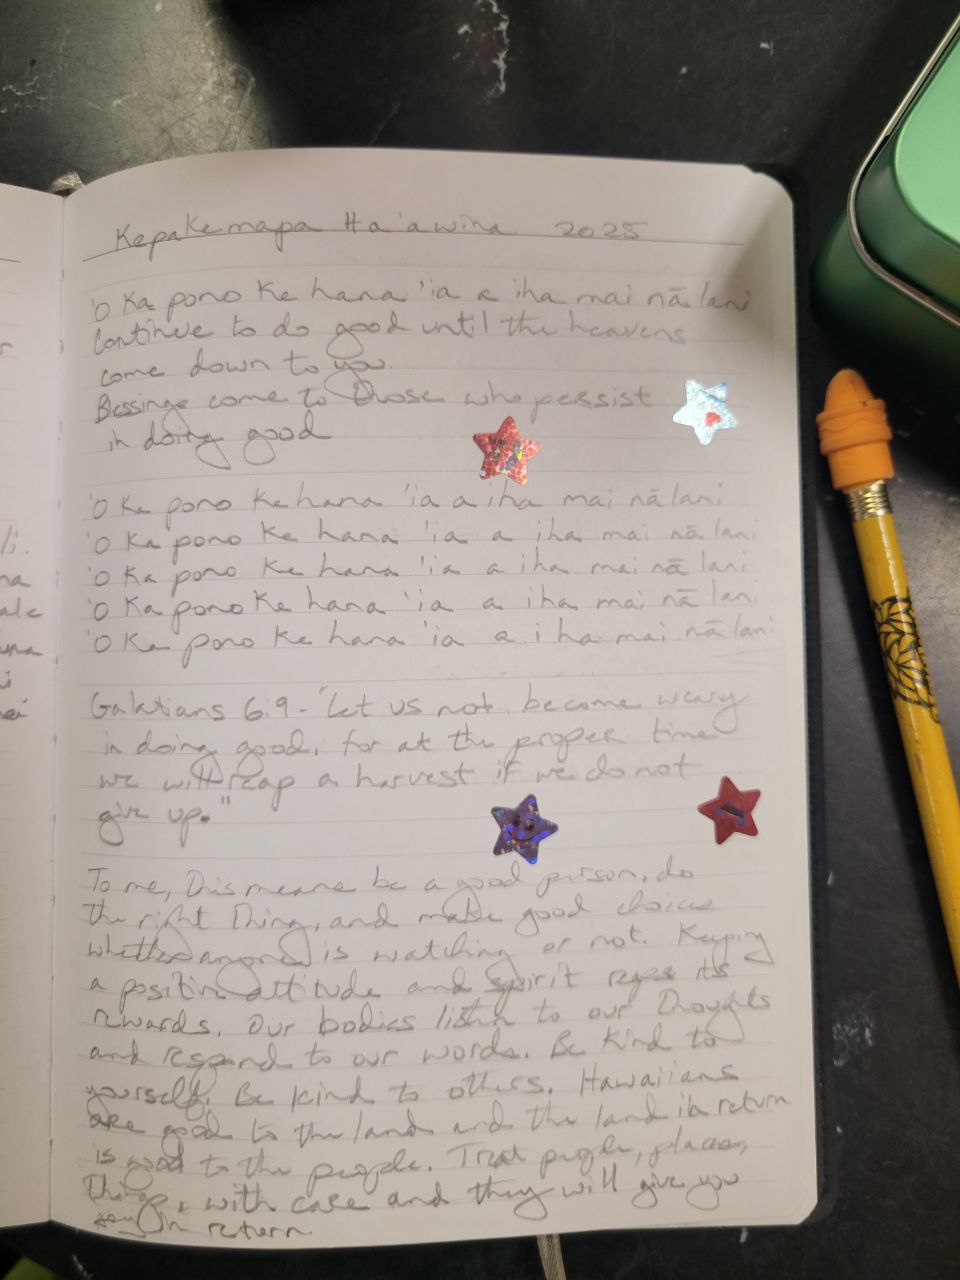 Kepakemapa Ha'awina 2025
'O Ka pono Ke hana 'ia a iha mai nā lani
Continue to do good until the heavens
come down to you.
Blessings come to those who persist
in doing good
'O Ka pono Ke hana 'ia a iha mai nā lani
'O Ka pono Ke hana 'ia a iha mai nā lani
'O Ka pono Ke hana 'ia a iha mai nā lani
'O Ka pono Ke hana 'ia a iha mai nā lani
'O Ka pono Ke hana 'ia a iha mai nā lani
Galatians 6:9 - "Let us not become weary
in doing good, for at the proper time
we will reap a harvest if we do not
give up."
To me, this means be a good person, do
the right thing, and make good choices
whether anyone is watching or not. Keeping
a positive attitude and spirit reaps its
rewards. Our bodies listen to our thoughts
and respond to our words. Be kind to
yourself. Be kind to others. Hawaiians
are good to the land and the land in return
is good to the people. Treat people, places,
things, with care and they will give you
in return.
li.
na
ale
una
i
nei